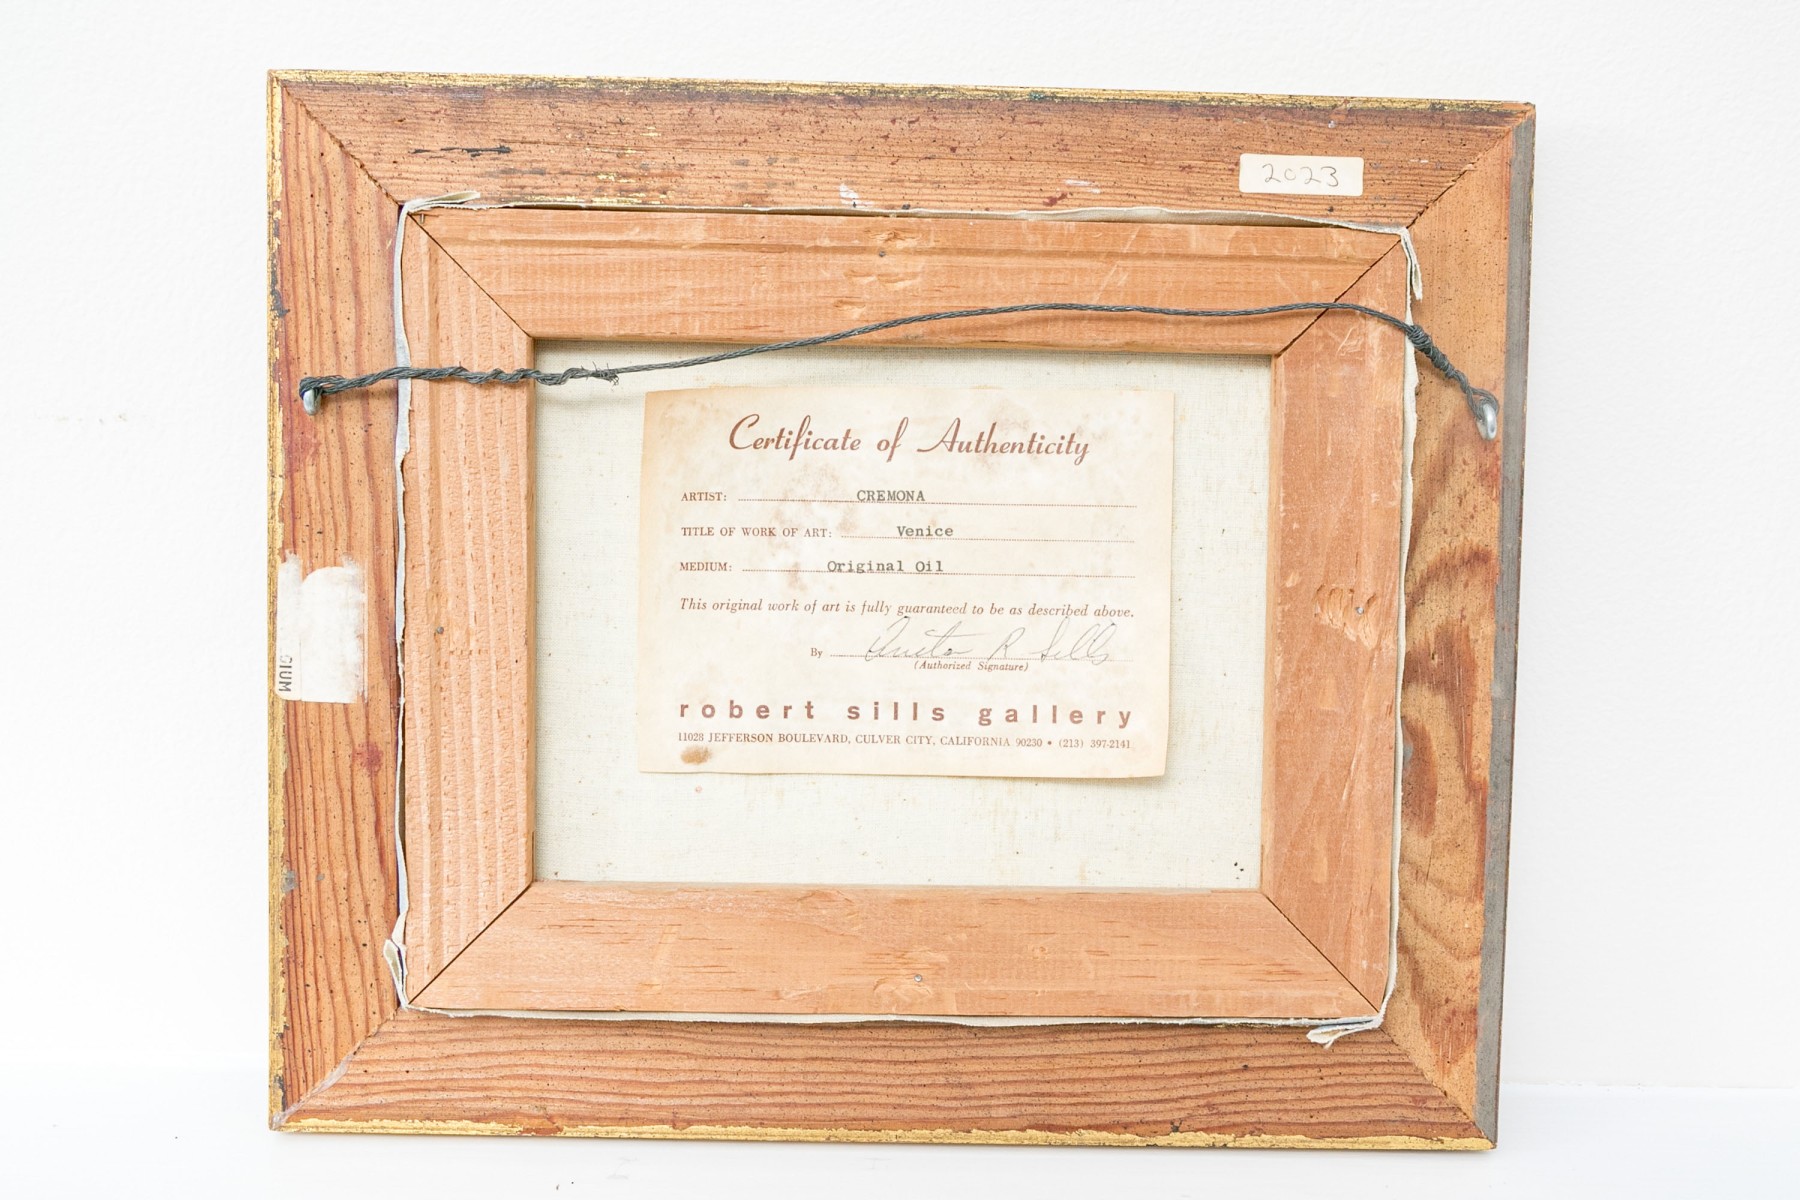 2023
Certificate of Authenticity
ARTIST: CREMONA
TITLE OF WORK OF ART: Venice
MEDIUM: Original Oil
This original work of art is fully guaranteed to be as described above.
By Anita R Sills
(Authorized Signature)
robert sills gallery
11028 JEFFERSON BOULEVARD, CULVER CITY, CALIFORNIA 90230 • (213) 397-2141